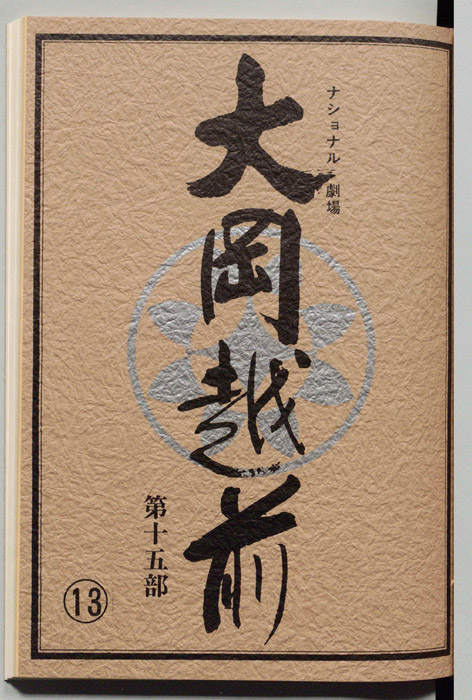 ナショナル劇場
大岡越前
第十五部
13